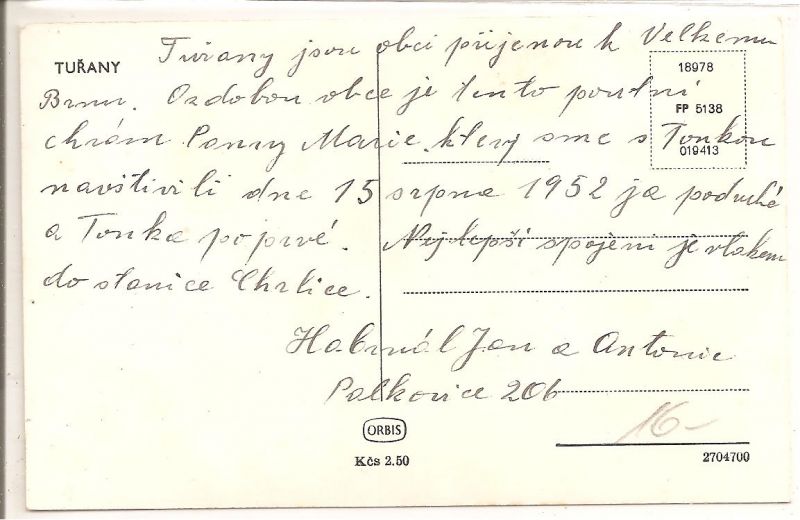 TUŘANY
Tuřany jsou obcí přijenou k Velkemu
18978
FP 5138
019413
Brnu. Ozdobou obce je tento poutní
chrám Panny Marie, ktery sme s Tonkou
navštivili dne 15 srpna 1952 ja podruhé
a Tonka poprvé. Nejlepší spojeni je vlakem
do stanice Chrlice.
Habrnál Jan a Antonie
Palkovice 206
16-
ORBIS
Kčs 2.50
2704700